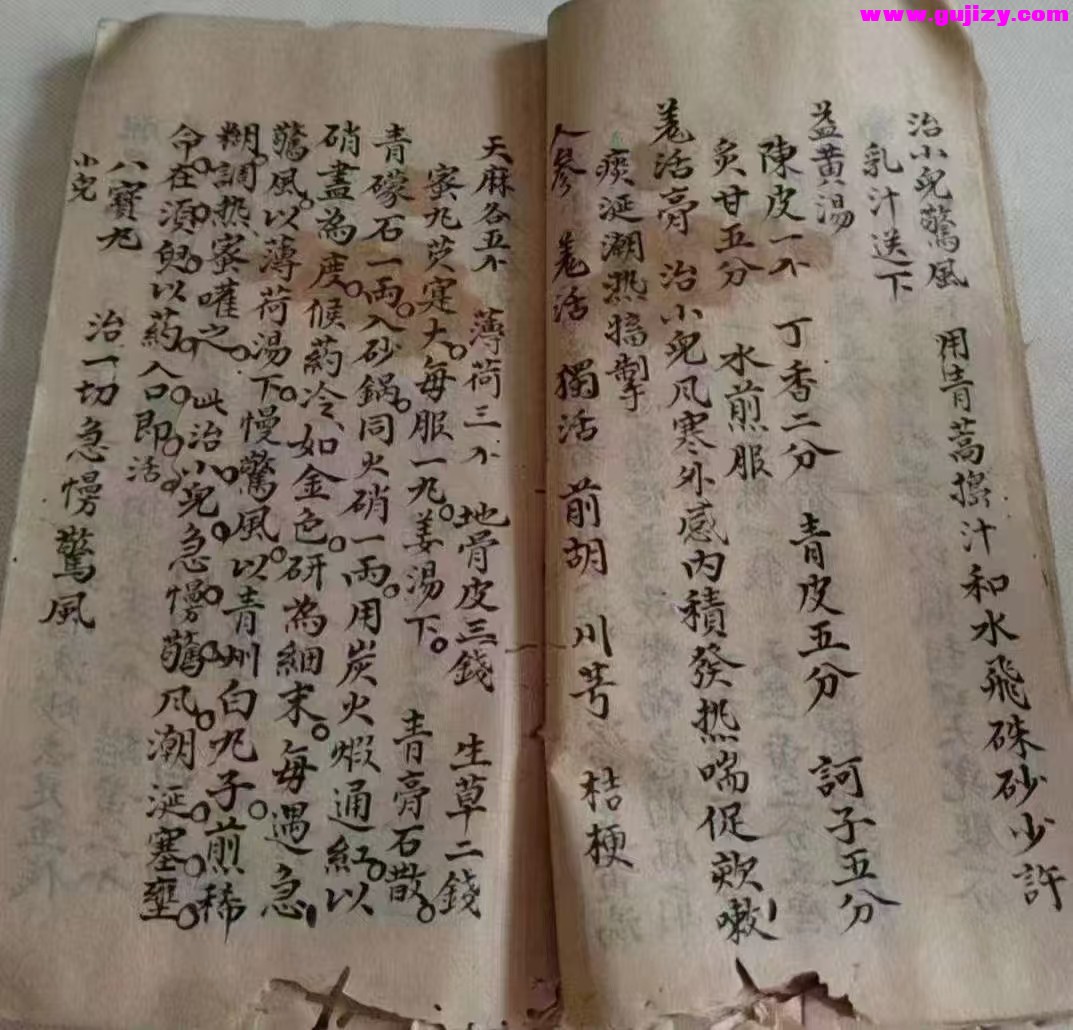 www.gujizy.com
治小兒驚風 用青蒿搗汁和水飛硃砂少許
乳汁送下
益黃湯
陳皮一个 丁香二分 青皮五分 訶子五分
炙甘五分 水煎服
羌活膏 治小兒风寒外感內積發热喘促欬嗽
痰涎潮热搐掣
人參 羌活 獨活 前胡 川芎 桔梗
天麻各五个 薄荷三个 地骨皮三錢 生草二錢
蜜丸芡寔大。每服一丸。姜湯下。 青膏石散。
青礞石一两。入砂鍋。同火硝一两。用炭火煆通紅。以
硝盡為度。候葯冷如金色。研為細末。每遇急
驚風。以薄荷湯下。慢驚風。以青州白丸子。煎稀
糊。調热蜜嚾之。此治小兒急慢驚风。潮涎塞壅。
命在須臾。以葯入口。即活。
八寶丸 治一切急慢驚風
小兒